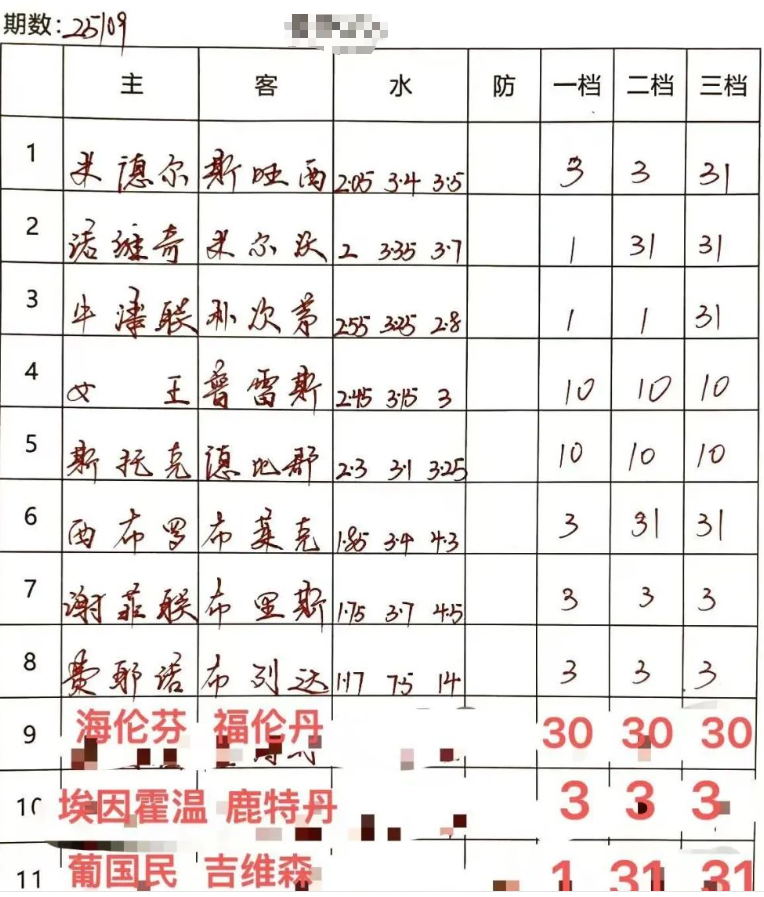 期数:25109
主 客 水 防 一档 二档 三档
1 米德尔 斯旺西 2.05 3.4 3.5 3 3 31
2 诺维奇 米尔沃 2 3.35 3.7 1 31 31
3 牛津联 朴次茅 2.55 3.25 2.8 1 1 31
4 女王 普雷斯 2.45 3.15 3 10 10 10
5 斯托克 德比郡 2.3 3.1 3.25 10 10 10
6 西布罗 布莱克 1.85 3.4 4.3 3 31 31
7 谢菲联 布里斯 1.75 3.7 4.5 3 3 3
8 费耶诺 布列达 1.17 7.5 14 3 3 3
9 海伦芬 福伦丹 30 30 30
10 埃因霍温 鹿特丹 3 3 3
11 葡国民 吉维森 1 31 31